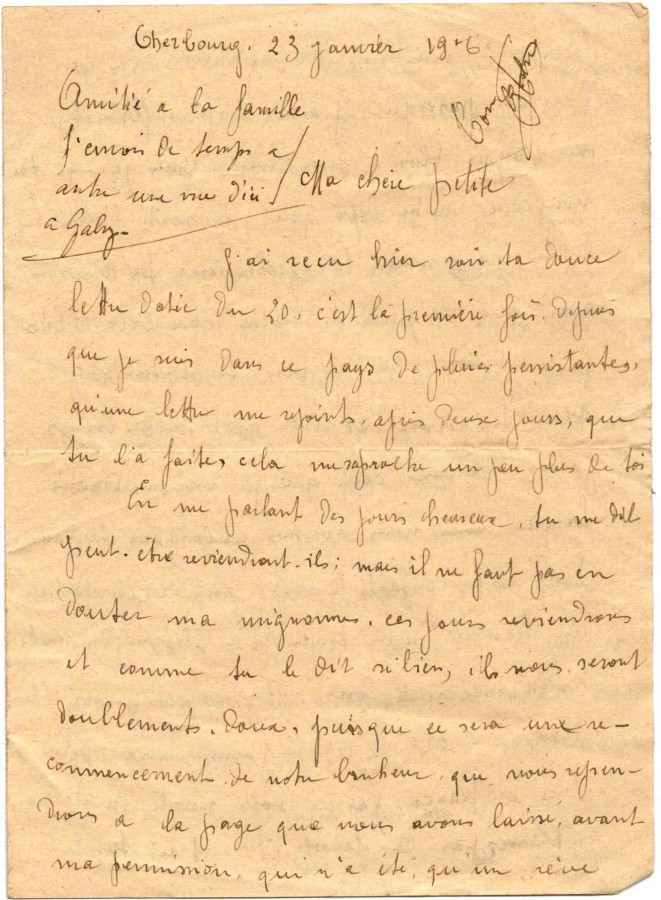 Cherbourg. 23 janvier 19-6
Amitié a la famille
J'envoi de temps a
autre une vue d'ici
a Gaby.
Ma chère petite
J'ai recu hier soir ta douce
lettre datée du 20, c'est la première fois. depuis
que je suis dans ce pays de pluies persistantes,
qu'une lettre me rejoints, après deux jours, que
tu l'a faites, cela me raproche un peu plus de toi
En me parlant des jours heureux, tu me dit
peut-être reviendront-ils; mais il ne faut pas en
douter ma mignonne, ces jours reviendrons
et comme tu le dit si bien, ils nous seront
doublements, doux, puisque ce sera une re-
commencement de notre bonheur, que nous repren-
drons a la page que nous avons laissé, avant
ma permission, qui n'a été, qu'un rêve